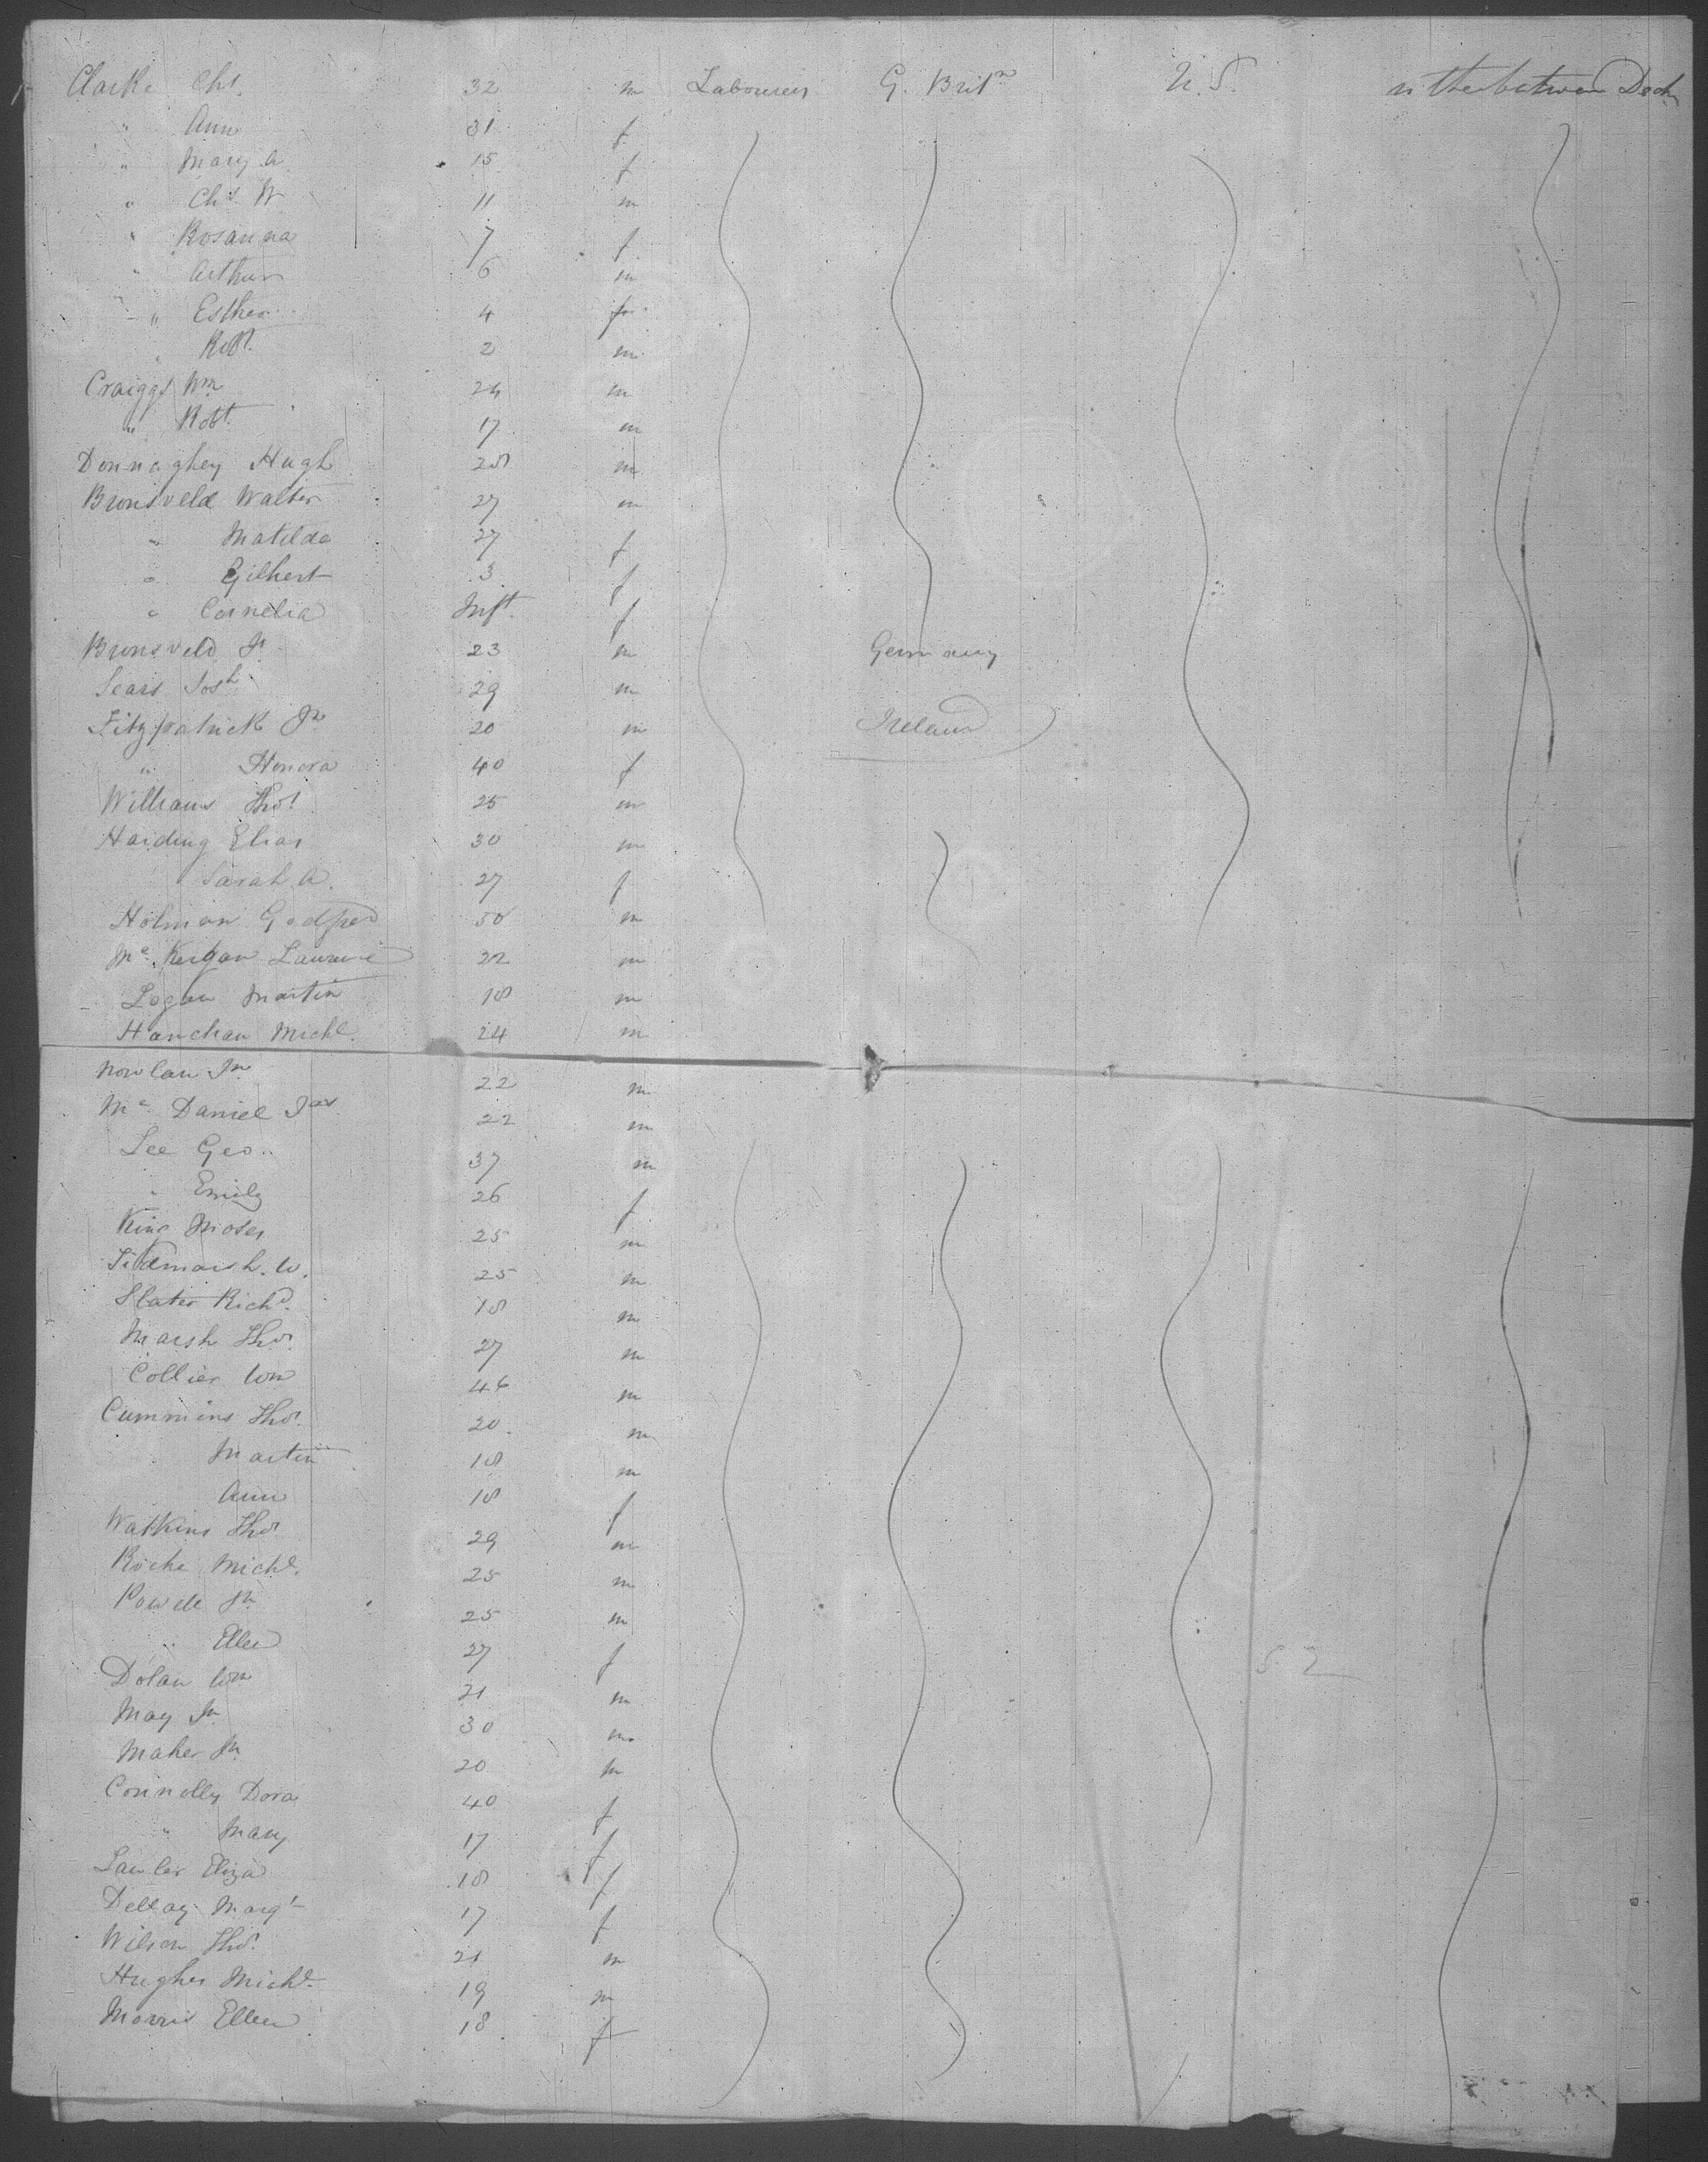 Clarke Chs. 32 m Labourers G. Britn U.S. in the between Deck
" Ann 31 f
" Mary A 15 f
" Chs. W 11 m
" Rosanna 7 f
" Arthur 6 m
" Esther 4 f
" Robt. 2 m
Craiggs Wm 24 m
" Robt. 17 m
Donnaghey Hugh 28 m
Bronsveld Walter 27 m
" Matilda 27 f
" Gilbert 3 f
" Cornelia Inft. f
Bronsveld Jn 23 m Germany
Sears Josh 29 m
Fitzpatrick Jn 20 m Ireland
" Honora 40 f
Williams Thos. 25 m
Harding Elias 30 m
Sarah A. 27 f
Holman Godfred 50 m
Mc Laurence 22 m
Logan Martin 18 m
Hanchan Michl. 24 m
Nowlan Jn 22 m
Mc Daniel Jas 22 m
Lee Geo.. 37 m
" Emily 26 f
King Moses 25 m
Tidmarsh. W. 25 m
Slater Richd. 18 m
Marsh Thos. 27 m
Collier Wm 46 m
Cummins Thos. 20 m
Martin 18 m
Ann 18 f
Watkins Thos 29 m
Roche Michl. 25 m
Powell Jn 25 m
" Ellen 27 f
Dolan Wm 21 m
May Jn 30 m
Maher Jn 20 m
Connolly Dora 40 f
" Mary 17 f
Lawler Eliza 18 f
Dellay Margt 17 f
Wilson Thos. 21 m
Hughes Michl. 19 m
Morris Ellen 18 f